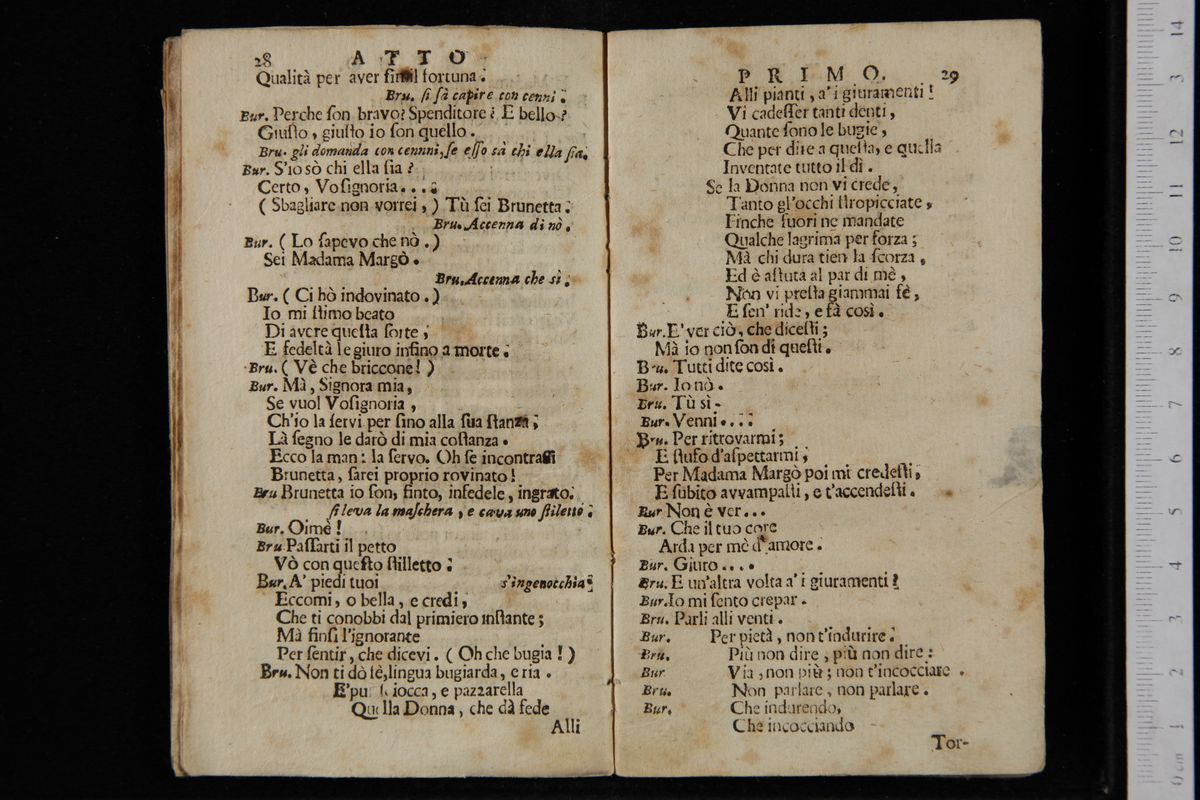 28 ATTO
Qualità per aver simil fortuna.
Bru. si fà capire con cenni.
Bur. Perche ſon bravo? Spenditore? E bello?
Giuſto, giuſto io ſon quello.
Bru. gli domanda con cennni, ſe eſſo sà chi ella ſia.
Bur. S'io sò chi ella ſia?
Certo, Voſignoria....
(Sbagliare non vorrei,) Tù ſei Brunetta.
Bru. Accenna di nò.
Bur. (Lo ſapevo che nò.)
Sei Madama Margò.
Bru. Accenna che sì.
Bur. (Ci hò indovinato.)
Io mi ſtimo beato
Di avere queſta ſorte,
E fedeltà le giuro inſino a morte.
Bru. (Vè che briccone!)
Bur. Mà, Signora mia,
Se vuol Voſignoria,
Ch'io la ſervi per fino alla ſua ſtanza;
Là ſegno le darò di mia coſtanza.
Ecco la man: la ſervo. Oh ſe incontraſſi
Brunetta, ſarei proprio rovinato!
Bru Brunetta io ſon, finto, infedele, ingrato.
ſi leva la maſchera, e cava uno ſtiletto.
Bur. Oimè!
Bru Paſſarti il petto
Vò con queſto ſtilletto.
Bur. A' piedi tuoi s'ingenocchia.
Eccomi, o bella, e credi,
Che ti conobbi dal primiero inſtante;
Mà finſi l'ignorante
Per ſentir, che dicevi. (Oh che bugia!)
Bru. Non ti dò fè, lingua bugiarda, e ria.
E' pur iocca, e pazzarella
Quella Donna, che dà fede
Alli
PRIMO. 29
Alli pianti, a' i giuramenti!
Vi cadeſſer tanti denti,
Quante ſono le bugie,
Che per dire a queſta, e quella
Inventate tutto il dì.
Se la Donna non vi crede,
Tanto gl'occhi ſtropicciate,
Finche fuori ne mandate
Qualche lagrima per forza;
Mà chi dura tien la ſcorza,
Ed è aſtuta al par di mè,
Non vi preſta giammai fè,
E ſen' ride, e fà così.
Bur. E' ver ciò, che diceſti;
Mà io non ſon di queſti.
Bru. Tutti dite così.
Bur. Io nò.
Bru. Tù sì.
Bur. Venni....
Bru. Per ritrovarmi;
E ſtufo d'aſpettarmi,
Per Madama Margò poi mi credeſti,
E ſubito avvampaſti, e t'accendeſti.
Bur Non è ver...
Bur. Che il tuo core
Arda per mè d'amore.
Bur. Giuro....
Bru. E un'altra volta a' i giuramenti!
Bur. Io mi ſento crepar.
Bru. Parli alli venti.
Bur. Per pietà, non t'indurire.
Bru. Più non dire, più non dire:
Bur Via, non più; non t'incocciare.
Bru. Non parlare, non parlare.
Bur. Che indurendo,
Che incocciando
Tor-